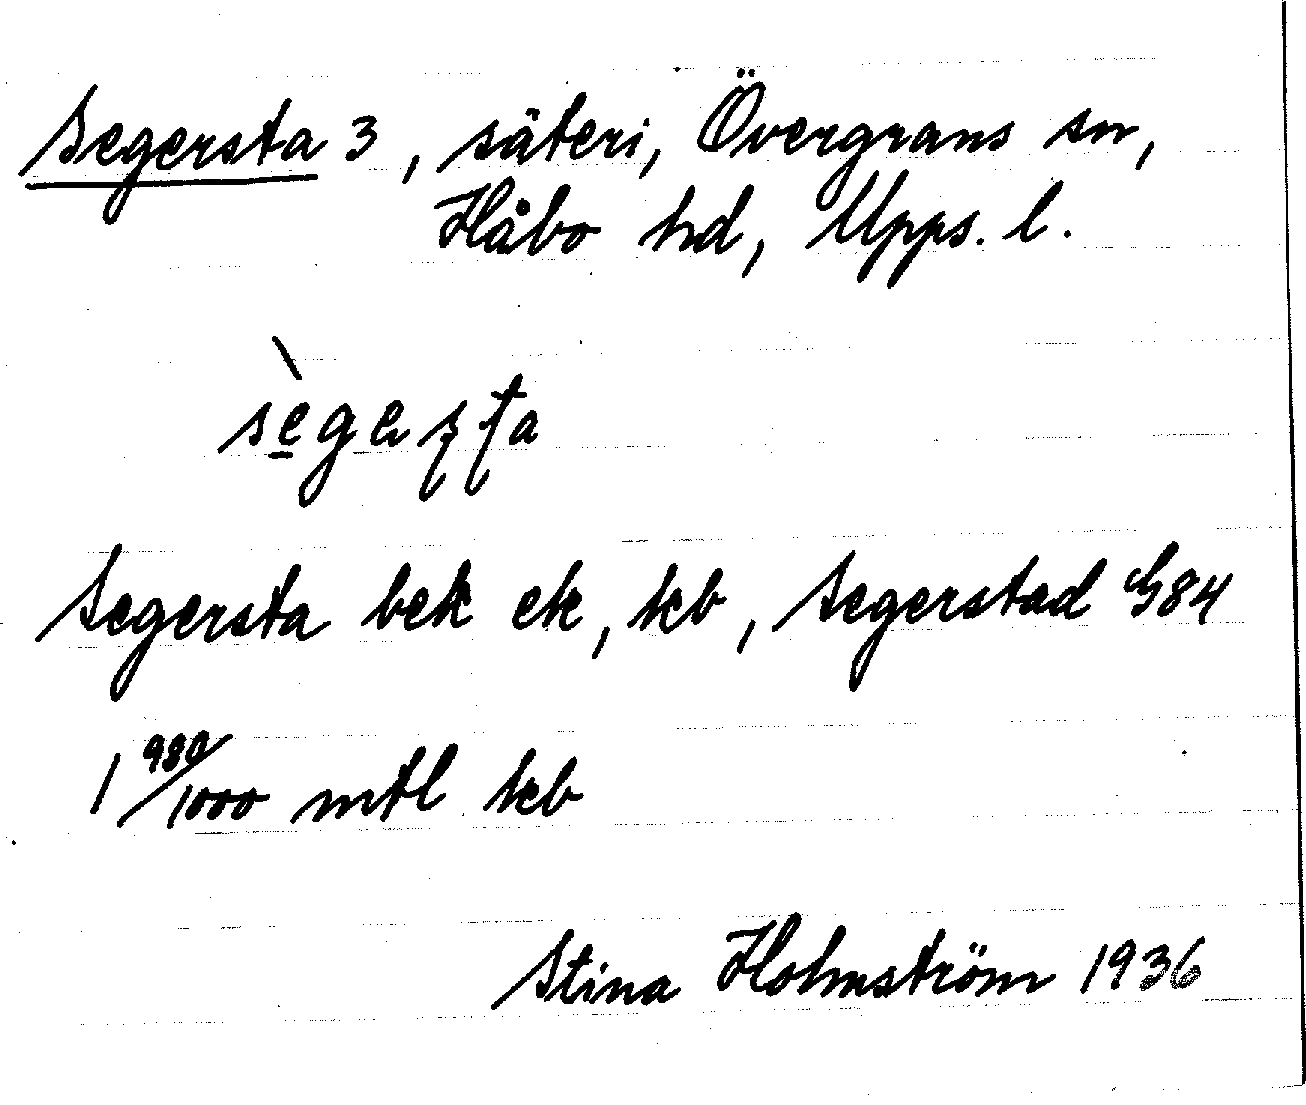 Segersta 3, säteri, Övergrans sn,
Håbo hd, Upps. l.
Segersta bek ek, kb, Segerstad G84
1 980/1000 mtl kb
Stina Holmström 1936